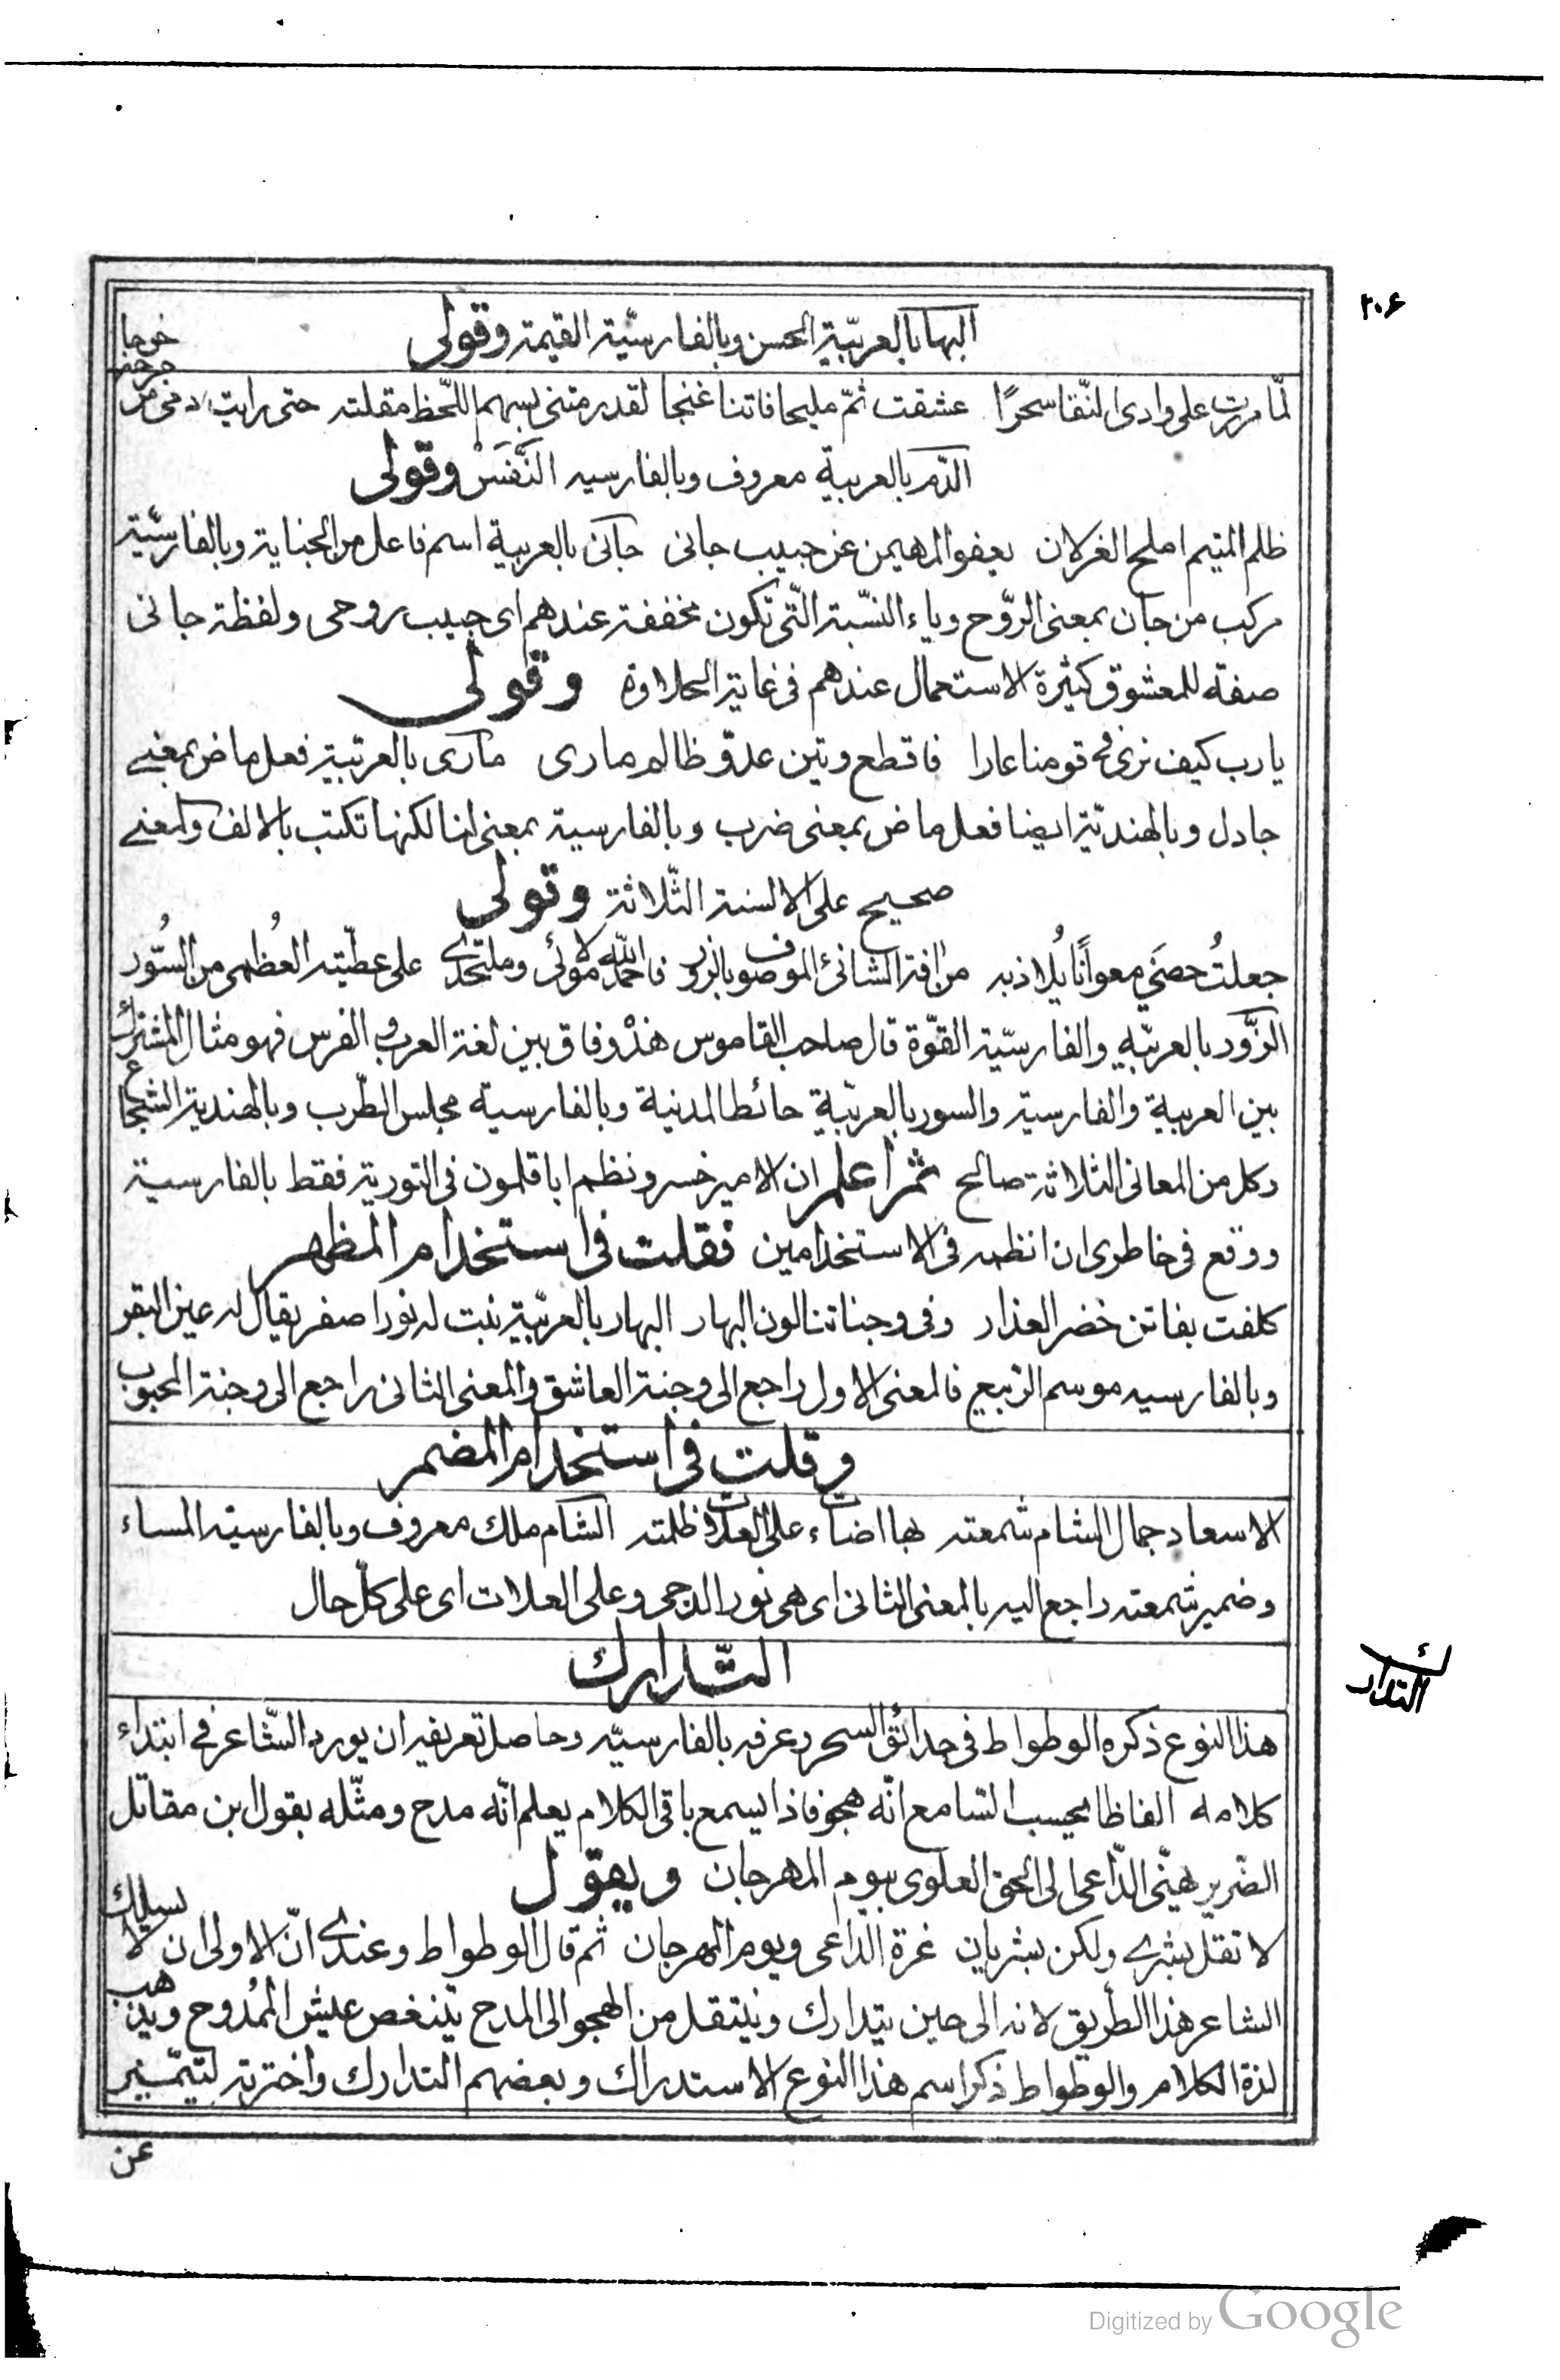 ٢٠٤
البها بالعربيّة الحسن وبالفارسيّة القيمة وقولى
لمّا مررت على وادى النّقا سحرًا عشقت ثمّ مليحا فاتنا غنجا لقد رمتنى بسهم اللّحظ مقلته حتى رايت دمى من
الدّم بالعربية معروف وبالفارسيه النَّفَسْ وقولى
ظلم المتيم املح الغزلان يعفو المهيمن عن حبيب جانى جانى بالعربية اسم فاعل من الجناية وبالفارسيّة
مركب من جان بمعنى الرّوح وياء النسّبة الّتى تكون مخففة عندهم اى حبيب روحى ولفظة جانى
صفة للمعشوق كثيرة الاستعمال عندهم فى غاية الحلاوة وقولى
يارب كيف نرى فى قومنا عارا فاقطع وتين عدوّ ظالم مارى مارى بالعربيّة فعل ماض بمعنى
جادل وبالهنديّة ايضا فعل ماض بمعنى ضرب وبالفارسية بمعنى لنا لكنها تكتب بالالف والمعنى
صحيح على الالسنة الثّلاثة وقولى
جعلتُ حصنى معوانًا يُلاذ به من افة الشانئ الموصوف بالزور فاحمد الله لا مولى وملتحدى على عطيّته العُظمى من السُّور
الزُّور بالعربيّه والفارسيّة القوّة قال صاحب القاموس هذْ وفاق بين لغة العرب و الفرس فهو مثال المشترك
بين العربية والفارسية والسور بالعربيّة حائط المدنية وبالفارسية مجلس الطّرب وبالهندية الشجاع
وكل من المعانى الثلاثة صالح ثمر اعلم ان الامير خسرو نظم اباقلمون فى التورية فقط بالفارسية
ووقع فى خاطرى ان انظمه فى الاستخدامين فقلت فى استخدام المظهر
كلفت بفاتن خضر العذار وفى وجناتنا لون البهار البهار بالعربيّة نبت له نور اصفر يقال له عين البقر
وبالفارسيه موسم الرّبيع فالمعنى الاول راجع الى وجنة العاشق والمعنى الثانى راجع الى وجنة المحبوب
وقلت فى استخدام المضمر
الا سعاد جمال الشام شمعته لها اضاءت على العلات فى ظلمته الشام ملك معروف وبالفارسية المساء
وضمير شمعته راجع اليه بالمعنى الثانى اى هى نور الدجى وعلى العلات اى على كلّ حال
التّدارك
التدارك
هذا النوع ذكره الوطواط فى حدائق السحر وعرفه بالفارسيّه وحاصل تعريفه ان يورد الشّاعر فى ابتداء
كلامه الفاظا يحسب السّامع انّه هجو فاذا يسمع باقى الكلام يعلم انّه مدح ومثّله بقول ابن مقاتل
الضّرير يهنّى الدّاعى الى الحق العلوى بيوم المهرجان ويقول
لا تقل بشرى ولكن بشريان غرة الدّاعى ويوم المهرجان ثم قال الوطواط وعندى انّ الاولى ان لا يسلك
الشاعر هذا الطّريق لانه الى حين يتدارك وينتقل من الهجو الى المدح يتنغص عيش الممُدوح ويذهب
لذة الكلام والوطواط ذكر اسم هذا النوع الاستدراك وبعضهم التدارك واخترته لتيمّيز
عن
Digitized by Google